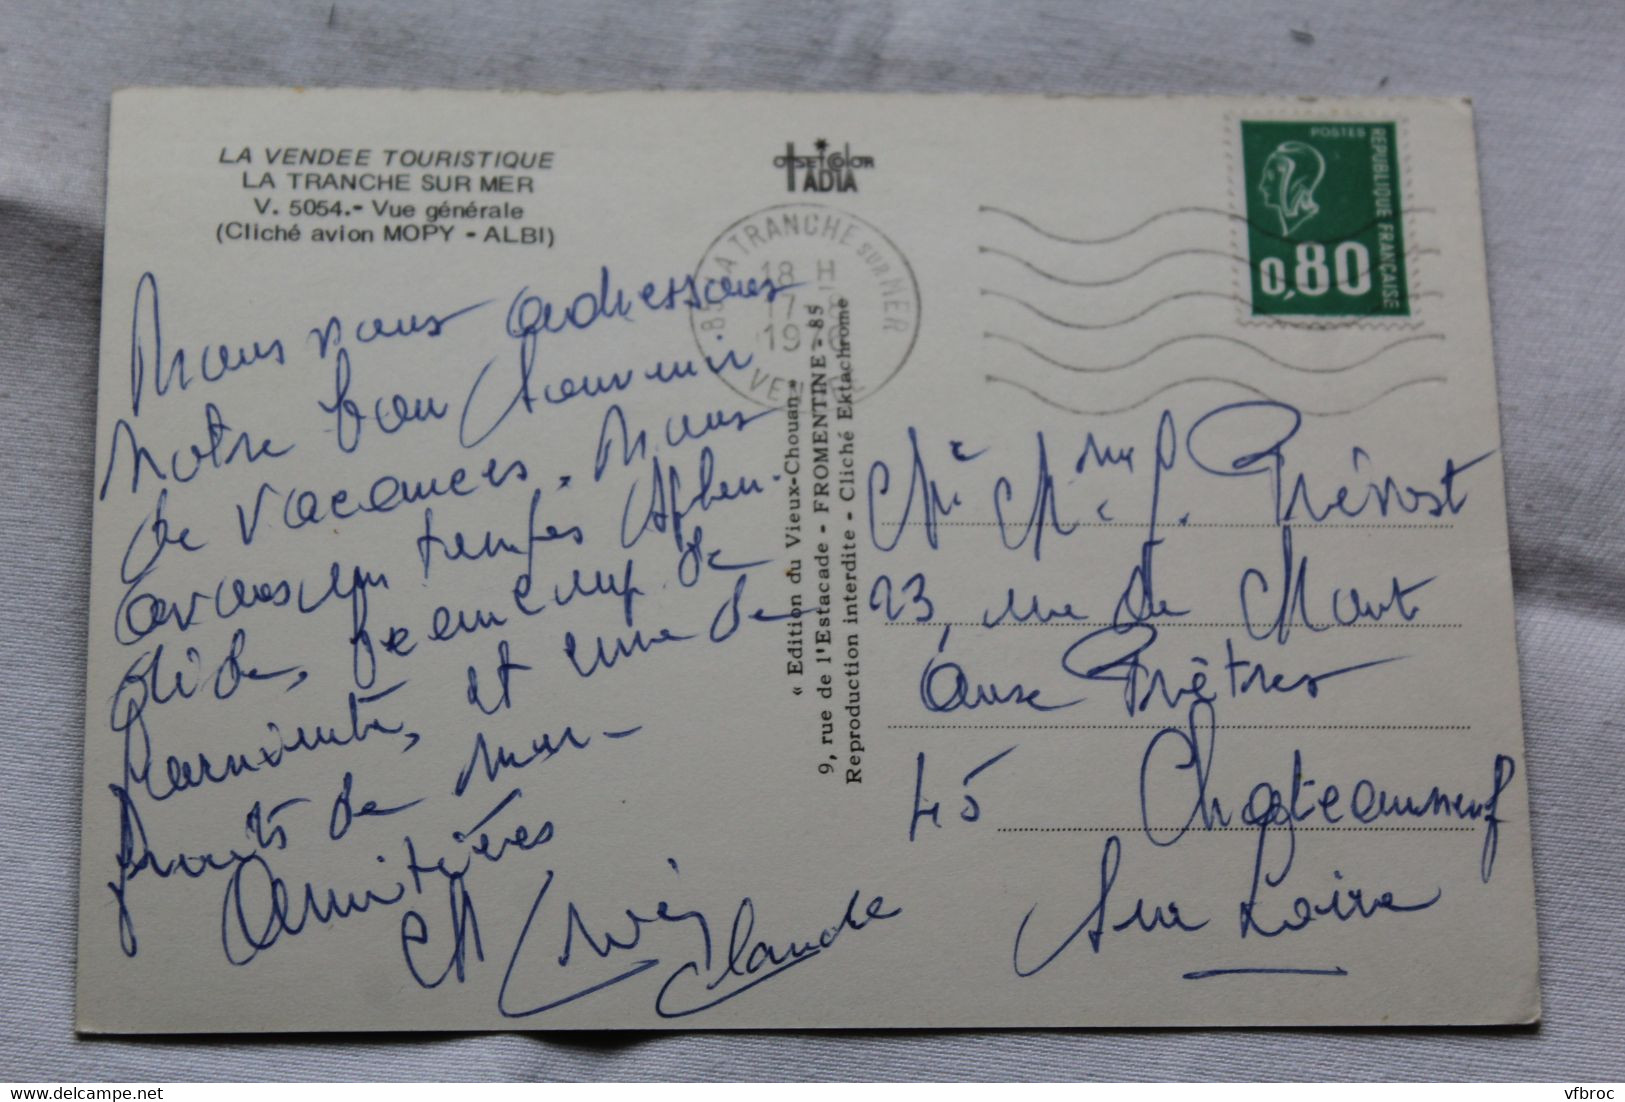 LA VENDEE TOURISTIQUE
LA TRANCHE SUR MER
V. 5054.- Vue générale
(Cliché avion MOPY - ALBI)
OFFSET COLOR
IADIA
85 LA TRANCHE SUR MER
18 H
17-8
1976
VENDEE
POSTES
REPUBLIQUE FRANÇAISE
0,80
Nous vous adressons
notre bon souvenir
de vacances. Nous
avons un temps splen-
dide, beaucoup de
parenté, et une de
fruits de mer -
Amitiés
Claude
« Edition du Vieux-Chouan »
9, rue de l'Estacade - FROMENTINE - 85
Reproduction interdite - Cliché Ektachrome
Mr Mme J. Prévost
23, rue du Mont
aux Prêtres
45 Chateauneuf
sur Loire
delcampe.net
vfbroc